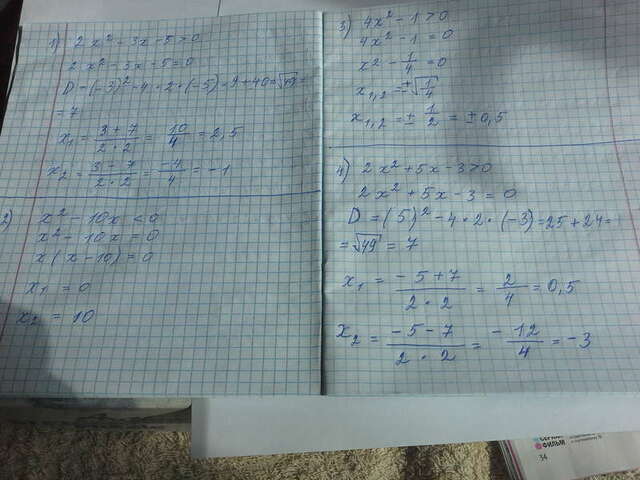 1) 2x² - 3x - 5 > 0
2x² - 3x - 5 = 0
D = (-3)² - 4 · 2 · (-5) = 9 + 40 = √49 =
= 7
x₁ = (3 + 7)/(2 · 2) = 10/4 = 2,5
x₂ = (3 - 7)/(2 · 2) = -4/4 = -1
2) x² - 10x < 0
x² - 10x = 0
x(x - 10) = 0
x₁ = 0
x₂ = 10
3) 4x² - 1 > 0
4x² - 1 = 0
x² - 1/4 = 0
x₁,₂ = ±√(1/4)
x₁,₂ = ± 1/2 = ± 0,5
4) 2x² + 5x - 3 > 0
2x² + 5x - 3 = 0
D = (5)² - 4 · 2 · (-3) = 25 + 24 =
= √49 = 7
x₁ = (-5 + 7)/(2 · 2) = 2/4 = 0,5
x₂ = (-5 - 7)/(2 · 2) = -12/4 = -3
ФИЛЬМ
34